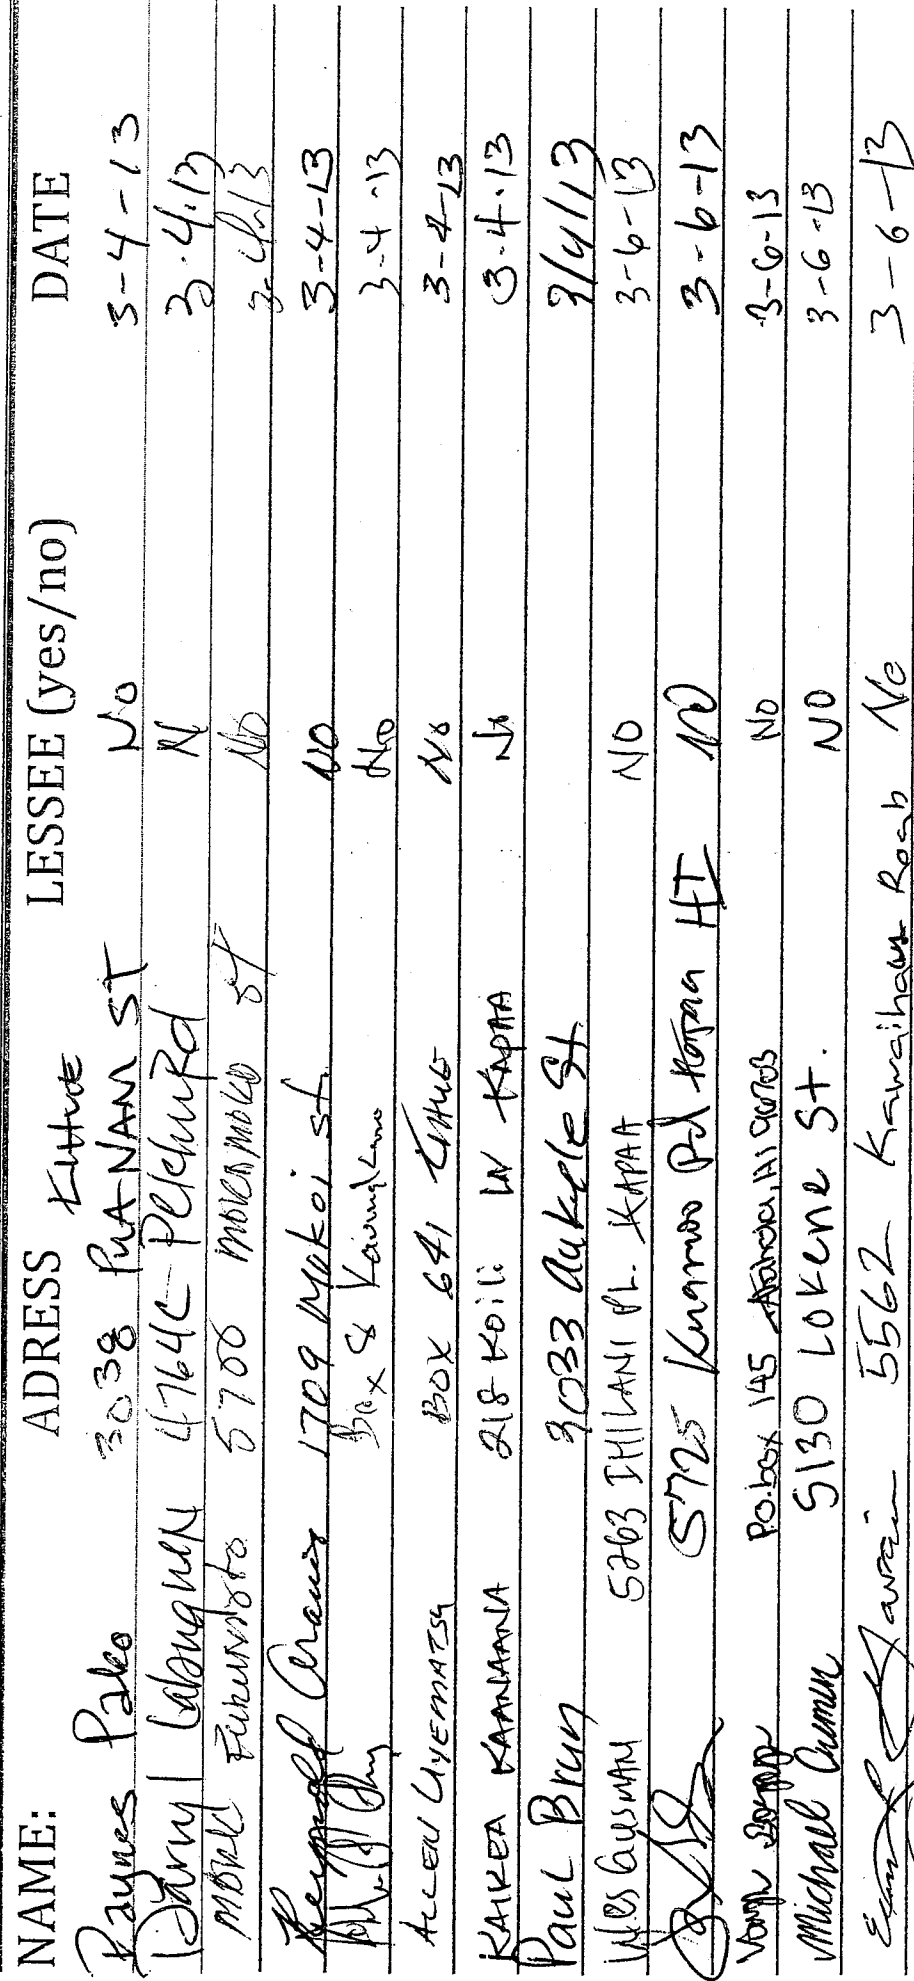 NAME: ADRESS LESSEE (yes/no) DATE
Raynes Pako 3038 PUA NANI ST LIHUE No 3-4-13
Darryl 4764C Pelehu Rd N 3.4.13
MARK FUKUMOTO 5700 ST No 3-4-13
1709 Makoi St. NO 3-4-13
Box 8 No 3-4-13
ALLEN UYEMATSU BOX 641 LIHUE No 3-4-13
KAIKEA KAANAANA 218 Koili LN KAPAA No 3.4.13
Paul Brun 3033 Aukele St. 3/4/13
Wes GUSMAN 5263 IHILANI PL. KAPAA NO 3-6-13
5725 Kuamoo Rd Kapaa HI NO 3-6-13
P.O. box 145 Anahola, HI 96703 No 3-6-13
Michael 5130 LOKENE St. NO 3-6-13
5562 Kawaihau Road No 3-6-13